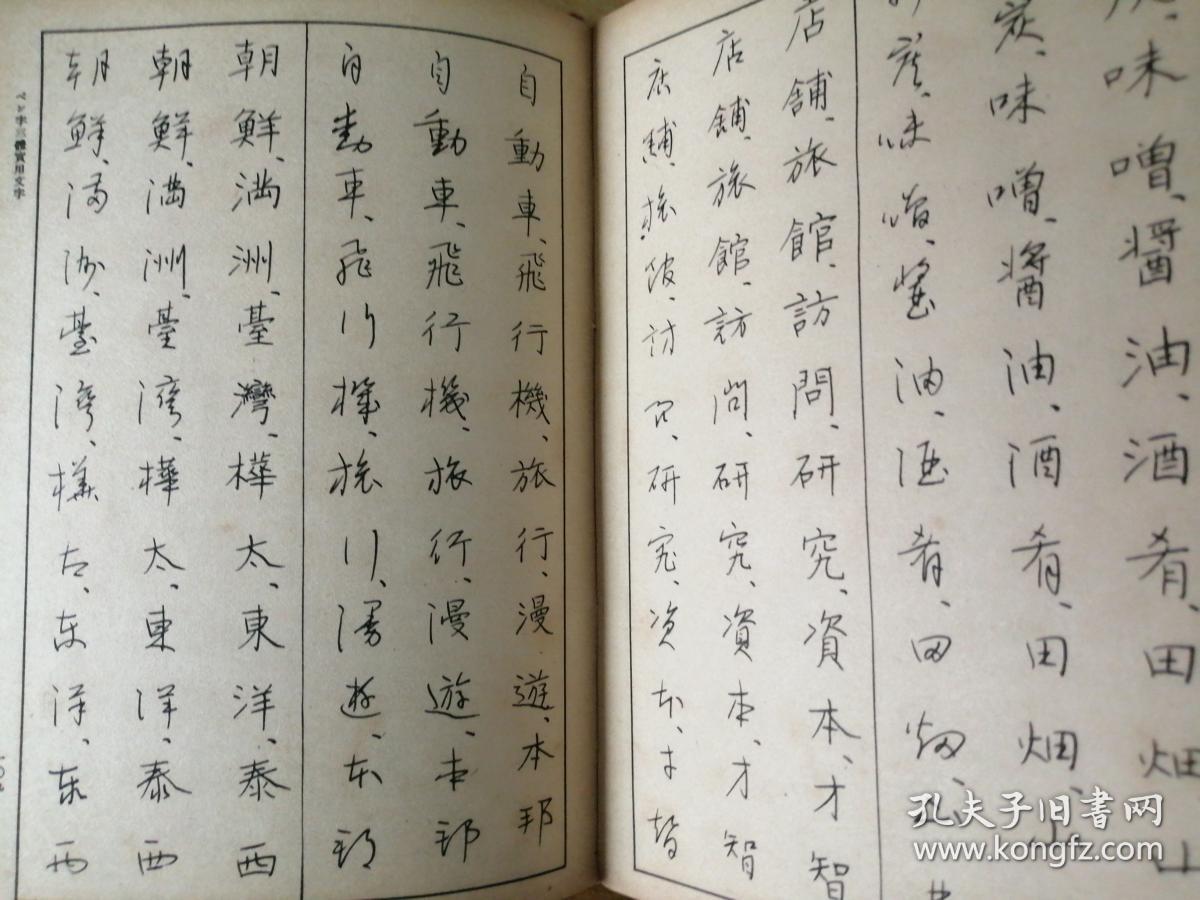 炭、味噌、醤油、酒肴、田畑
炭、味噌、醤油、酒肴、田畑、
炭、味噌、醤油、酒肴、田畑、
店舗、旅館、訪問、研究、資本、才智
店舗、旅館、訪問、研究、資本、才智
店舗、旅館、訪問、研究、資本、才智
自動車、飛行機、旅行、漫遊、本邦
自動車、飛行機、旅行、漫遊、本邦
自動車、飛行機、旅行、漫遊、本邦
朝鮮、満洲、臺灣、樺太、東洋、泰西
朝鮮、満洲、臺灣、樺太、東洋、泰西
朝鮮、満洲、臺灣、樺太、東洋、泰西
ペン字三體實用文字
孔夫子旧书网
www.kongfz.com